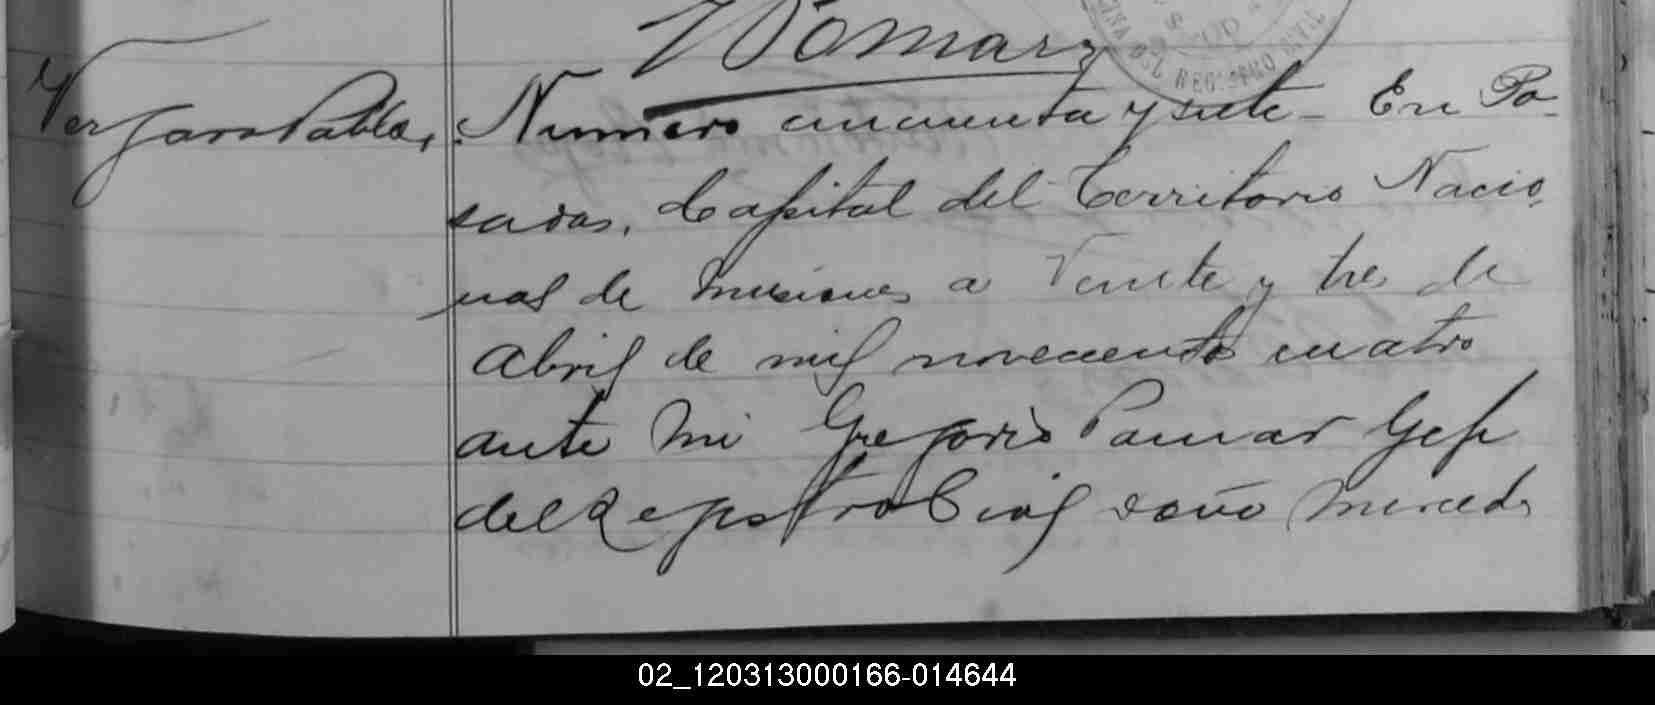 Vergara Pablo,
Numero cincuenta y siete - En Po-
sadas, Capital del Territorio Nacio
nal de Misiones a Veinte y tres de
Abril de mil novecientos cuatro
ante mi Gregorio Pomar Gefe
del Registro Civil doña Mercedes
02_120313000166-014644